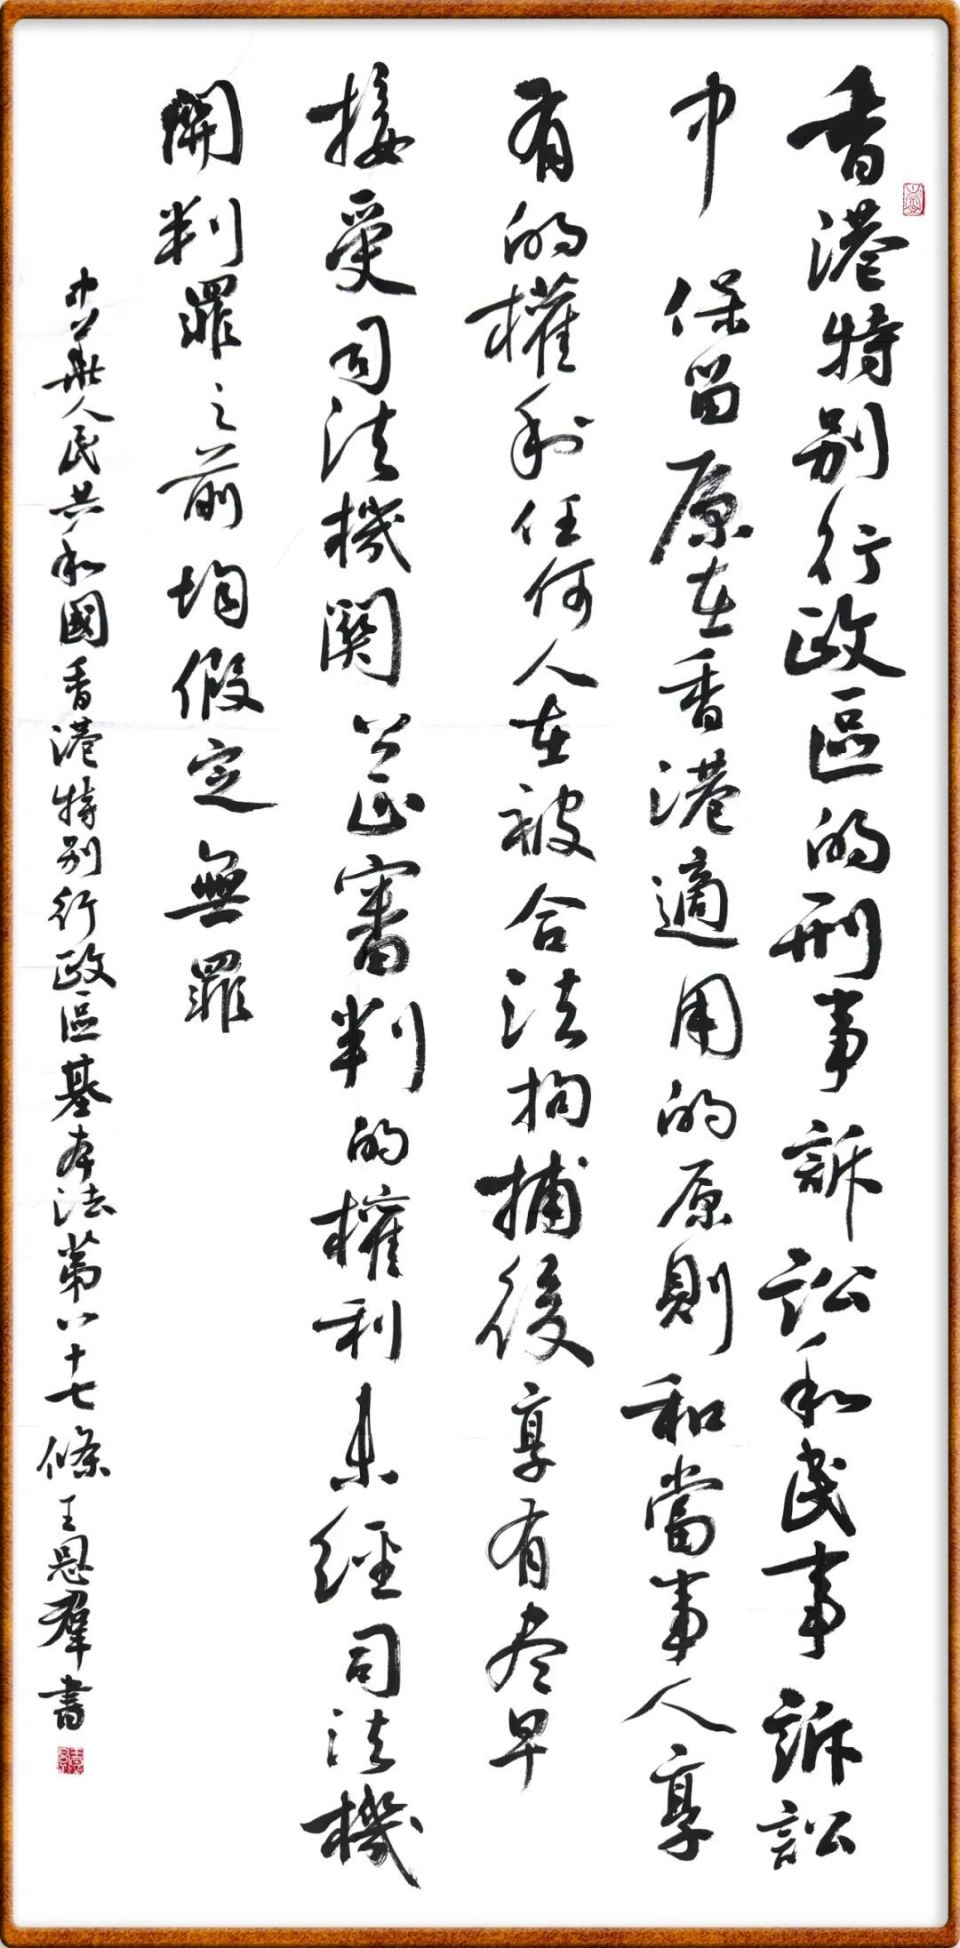 香港特别行政區的刑事訴訟和民事訴訟
中保留原在香港適用的原則和當事人享
有的權利任何人在被合法拘捕後享有尽早
接受司法機関公正審判的權利未經司法機
関判罪之前均假定無罪
中华人民共和國香港特别行政區基本法第八十七條王恩群書